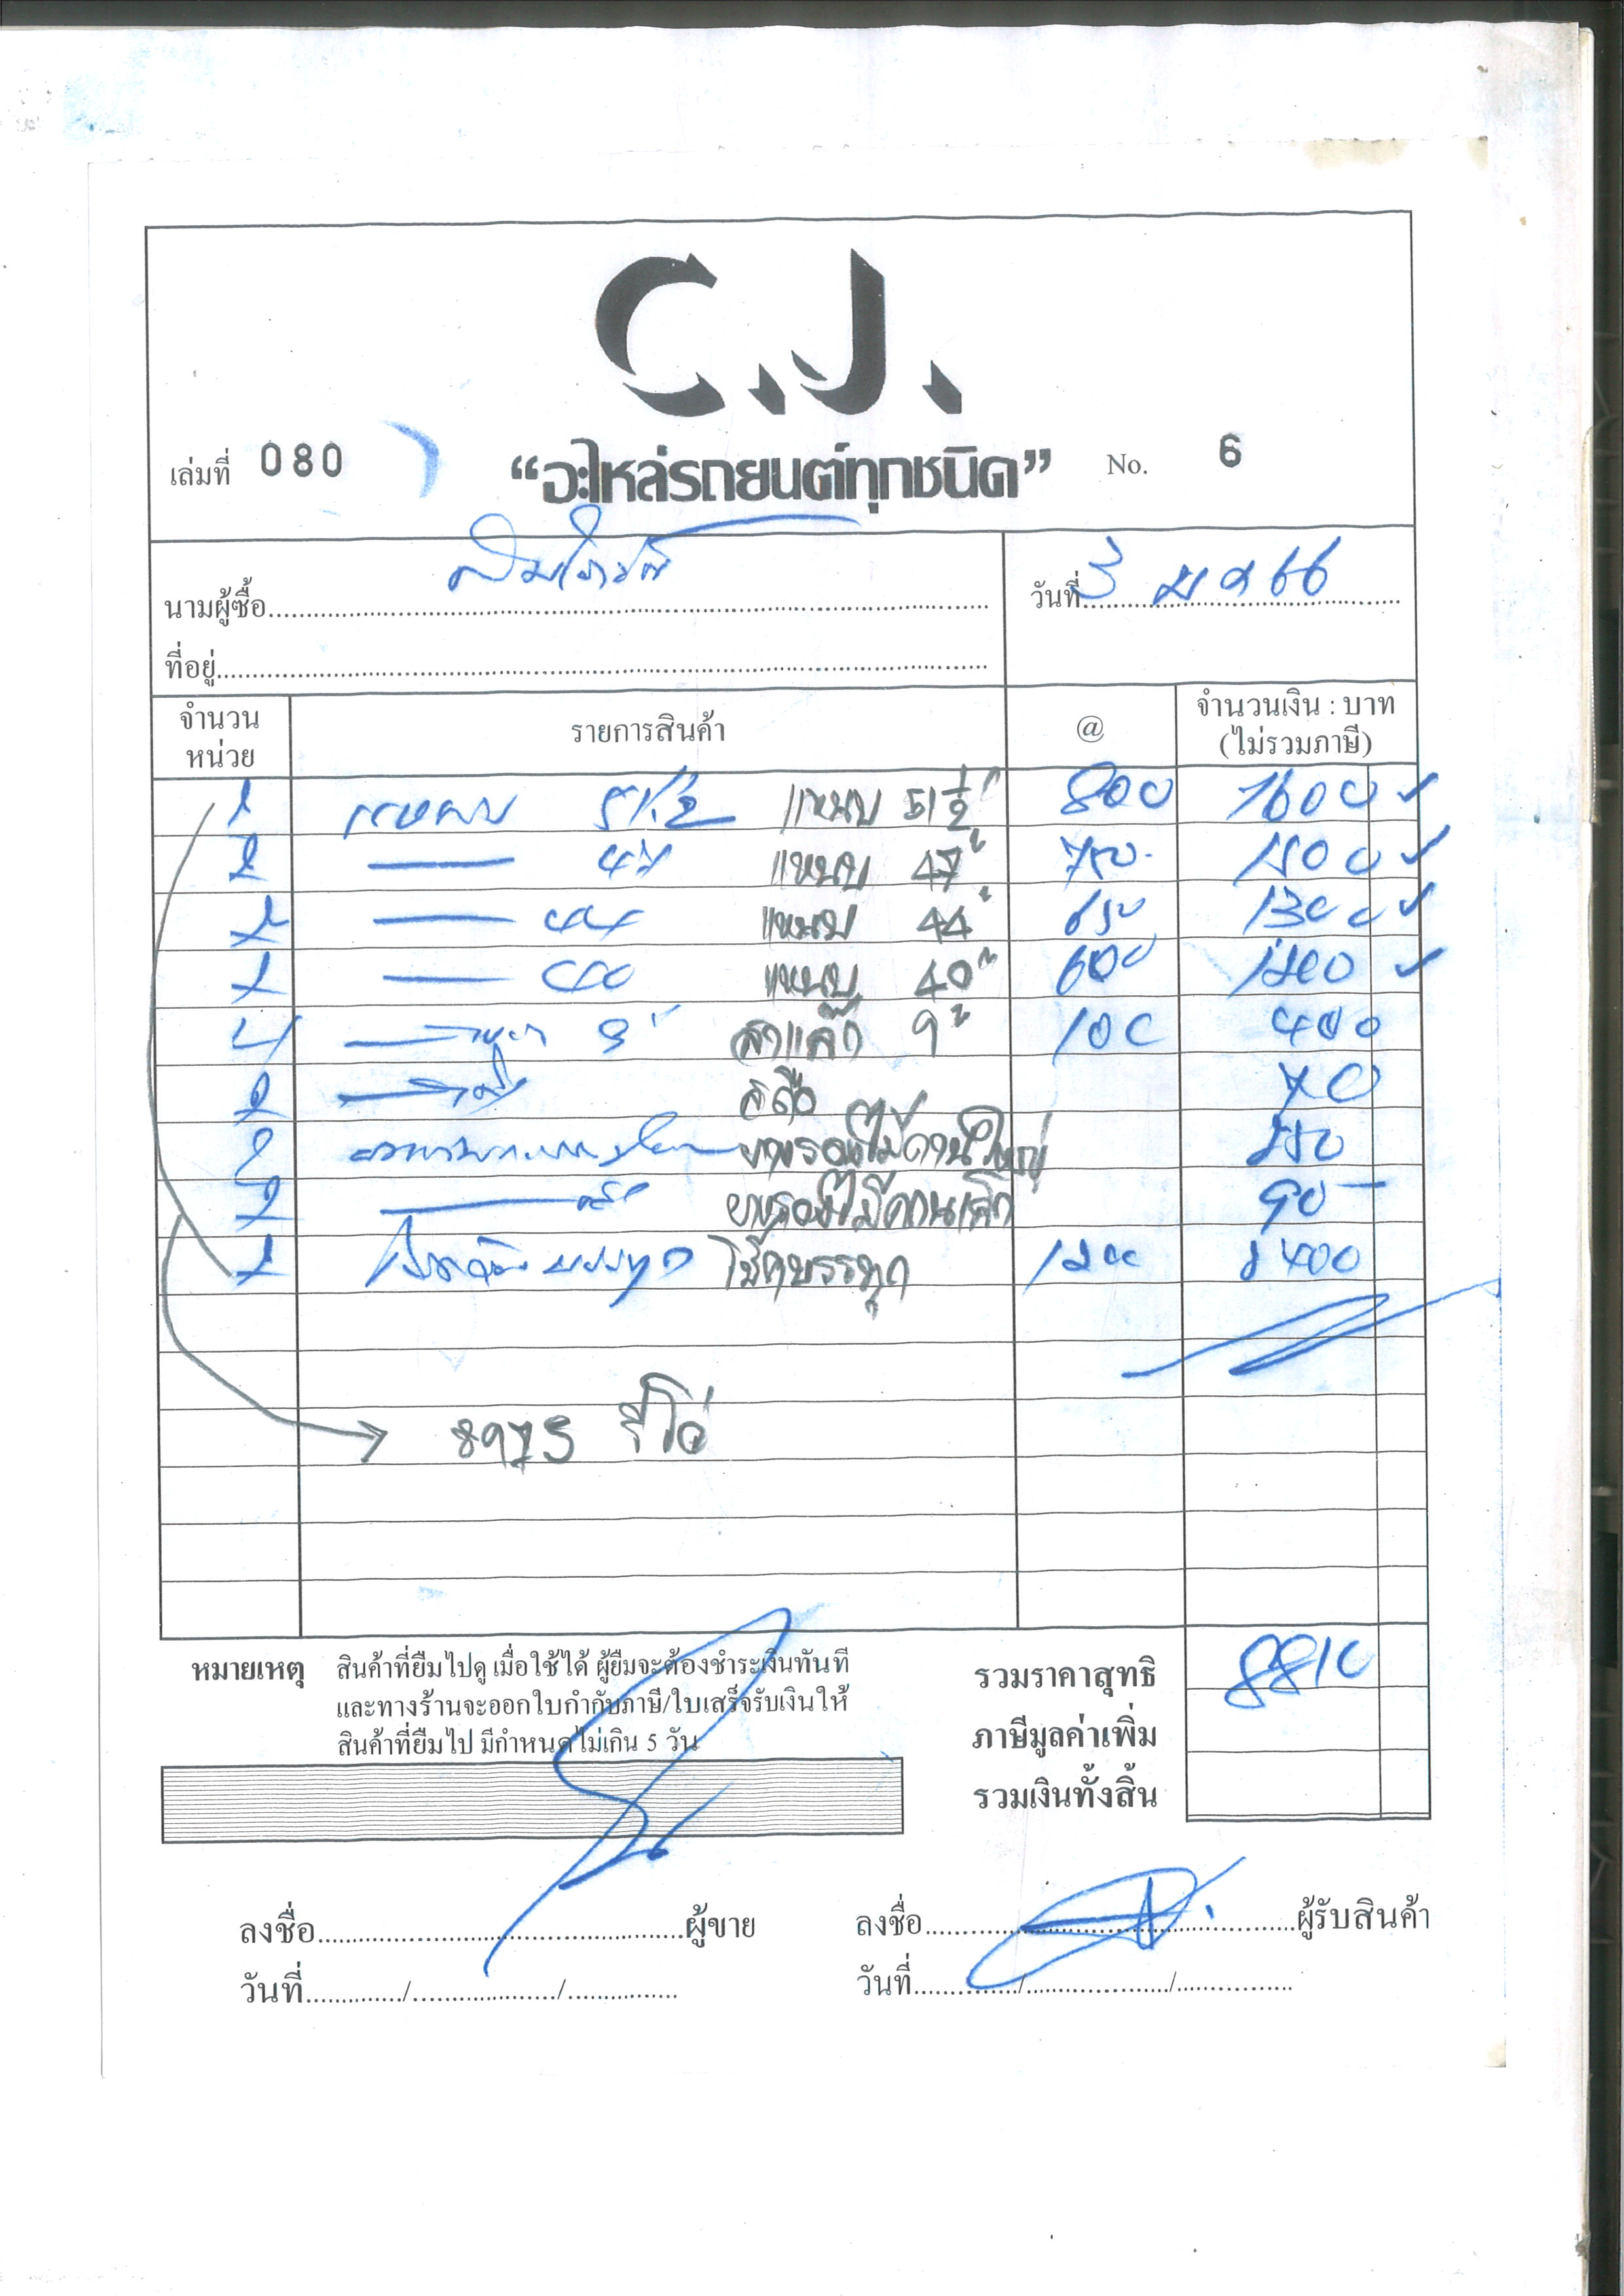 C.J.
เล่มที่ 080 “อะไหล่รถยนต์ทุกชนิด” No. 6
นามผู้ซื้อ วันที่ 3 66
ที่อยู่
จำนวน หน่วย รายการสินค้า @ จำนวนเงิน : บาท (ไม่รวมภาษี)
2 แหนบ 51 1/2 แหนบ 51 1/2" 800 1600
2 47 แหนบ 47" 750 1500
2 44 แหนบ 44" 650 1300
2 40 แหนบ 40" 600 1200
4 9" 9" 100 400
2 70
2 ยางรองไม้คานใหญ่ 250
2 เล็ก ยางรองไม้คานเล็ก 90
2 โช๊คบรรทุก 1200 2400
8975 รีโว่
หมายเหตุ สินค้าที่ยืมไปดู เมื่อใช้ได้ ผู้ยืมจะต้องชำระเงินทันที
และทางร้านจะออกใบกำกับภาษี/ใบเสร็จรับเงินให้
สินค้าที่ยืมไป มีกำหนดไม่เกิน 5 วัน
รวมราคาสุทธิ 8810
ภาษีมูลค่าเพิ่ม
รวมเงินทั้งสิ้น
ลงชื่อ ผู้ขาย ลงชื่อ ผู้รับสินค้า
วันที่ / / วันที่ / /